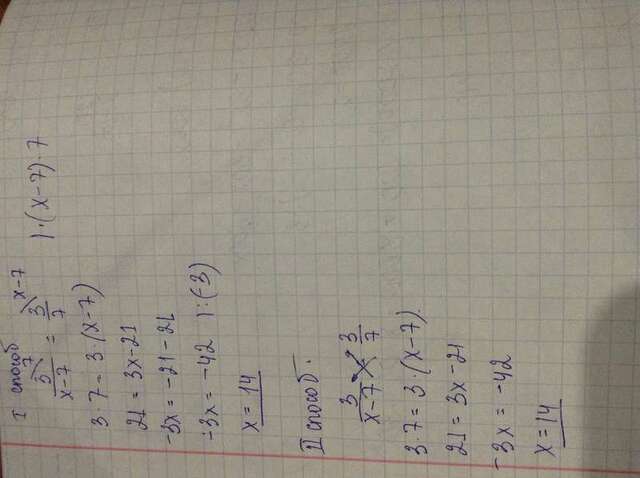 I способ
3/(x-7) \7 = 3/7 \x-7 |·(x-7)·7
3·7=3·(x-7)
21=3x-21
-3x=-21-21
-3x=-42 |:(-3)
x=14
II способ.
3/(x-7) = 3/7
3·7=3·(x-7)
21=3x-21
-3x=-42
x=14